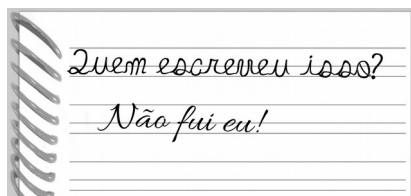 Quem escreveu isso?
Não fui eu!